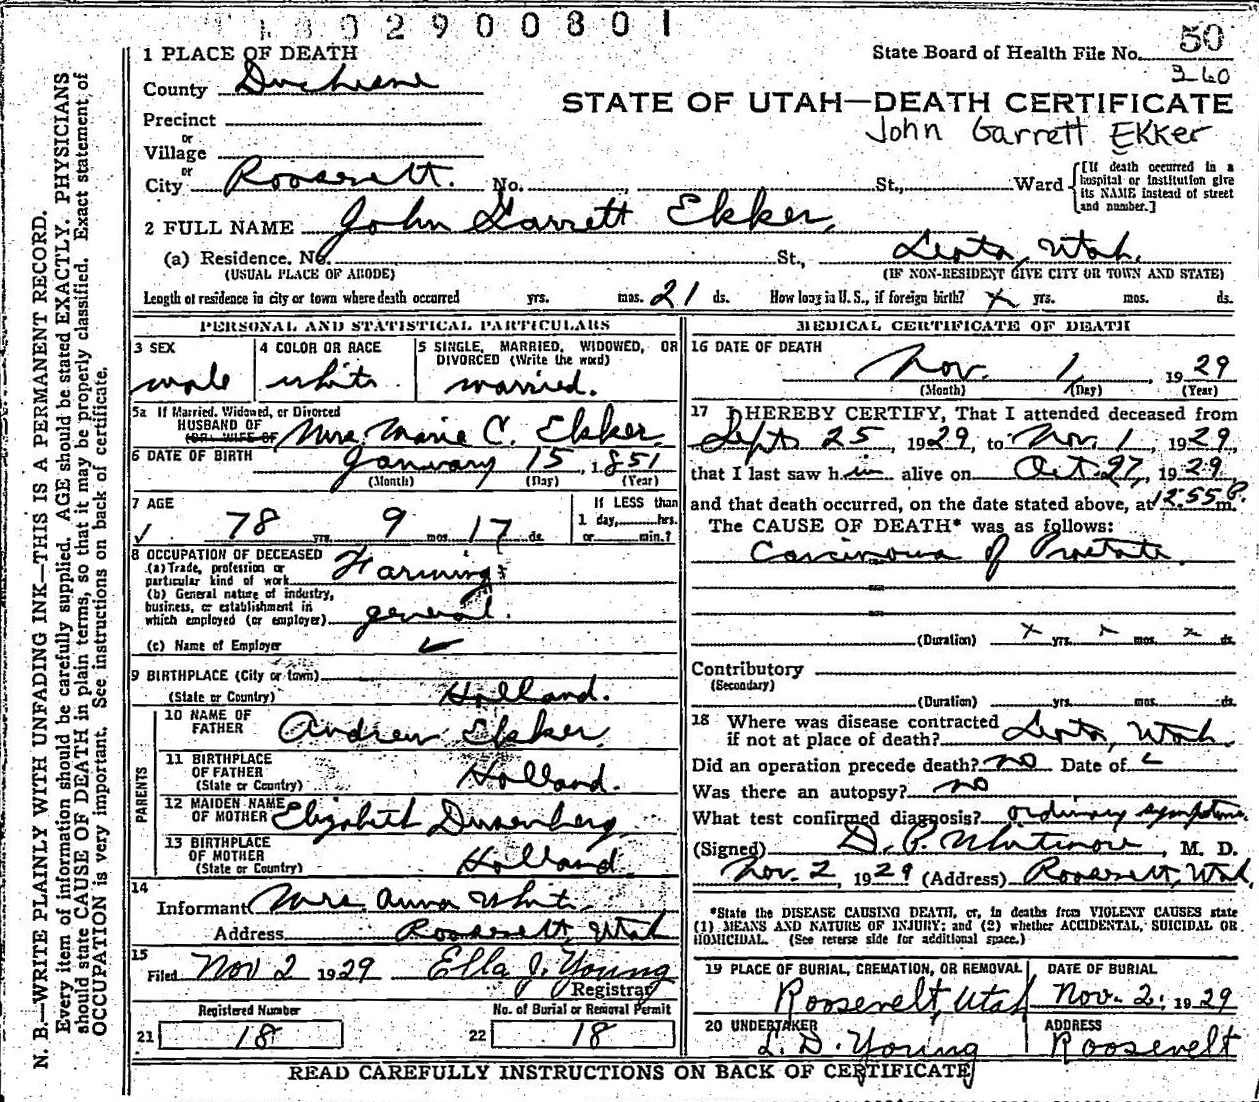 1 8 0 2 9 0 0 8 0 1
State Board of Health File No. 50
360
STATE OF UTAH—DEATH CERTIFICATE
John Garrett Ekker
1 PLACE OF DEATH
County Duchesne
Precinct
or
Village
or
City Roosevelt. No. St., Ward
[If death occurred in a
hospital or institution give
its NAME instead of street
and number.]
2 FULL NAME John Garrett Ekker,
(a) Residence. No. St., Leota, Utah.
(USUAL PLACE OF ABODE) (IF NON-RESIDENT GIVE CITY OR TOWN AND STATE)
Length of residence in city or town where death occurred yrs. mos. 21 ds. How long in U. S., if foreign birth? x yrs. mos. ds.
PERSONAL AND STATISTICAL PARTICULARS
3 SEX
male
4 COLOR OR RACE
white
5 SINGLE, MARRIED, WIDOWED, OR
DIVORCED (Write the word)
married.
5a If Married, Widowed, or Divorced
HUSBAND OF
(OR) WIFE OF Mrs. Marie C. Ekker.
6 DATE OF BIRTH January 15, 1851
(Month) (Day) (Year)
7 AGE
✓ 78 yrs. 9 mos. 17 ds.
If LESS than
1 day, hrs.
or min.?
8 OCCUPATION OF DECEASED
(a) Trade, profession or
particular kind of work Farming
(b) General nature of industry,
business, or establishment in
which employed (or employer) general.
(c) Name of Employer ✓
9 BIRTHPLACE (City or town)
(State or Country) Holland.
PARENTS
10 NAME OF
FATHER Andrew Ekker
11 BIRTHPLACE
OF FATHER
(State or Country) Holland.
12 MAIDEN NAME
OF MOTHER Elizabeth Dusenberg,
13 BIRTHPLACE
OF MOTHER
(State or Country) Holland
14
Informant Mrs. Anna White,
Address Roosevelt, Utah
15
Filed Nov 2 1929 Ella J. Young
Registrar
Registered Number
21 18
No. of Burial or Removal Permit
22 18
MEDICAL CERTIFICATE OF DEATH
16 DATE OF DEATH
Nov. 1, 1929
(Month) (Day) (Year)
17 I HEREBY CERTIFY, That I attended deceased from
Sept 25, 1929, to Nov. 1, 1929,
that I last saw h im alive on Oct. 27, 1929
and that death occurred, on the date stated above, at 12:55 P. m.
The CAUSE OF DEATH* was as follows:
Carcinoma of Prostate
(Duration) x yrs. x mos. x ds.
Contributory
(Secondary)
(Duration) yrs. mos. ds.
18 Where was disease contracted
if not at place of death? Leota, Utah.
Did an operation precede death? no Date of
Was there an autopsy? no
What test confirmed diagnosis? ordinary symptoms.
(Signed) D. P. Whitmore, M. D.
Nov. 2, 1929 (Address) Roosevelt, Utah,
*State the DISEASE CAUSING DEATH, or, in deaths from VIOLENT CAUSES state
(1) MEANS AND NATURE OF INJURY; and (2) whether ACCIDENTAL, SUICIDAL OR
HOMICIDAL. (See reverse side for additional space.)
19 PLACE OF BURIAL, CREMATION, OR REMOVAL
Roosevelt, Utah
DATE OF BURIAL
Nov. 2, 1929
20 UNDERTAKER
L. D. Young
ADDRESS
Roosevelt
READ CAREFULLY INSTRUCTIONS ON BACK OF CERTIFICATE
N. B.—WRITE PLAINLY WITH UNFADING INK—THIS IS A PERMANENT RECORD.
Every item of information should be carefully supplied. AGE should be stated EXACTLY. PHYSICIANS
should state CAUSE OF DEATH in plain terms, so that it may be properly classified. Exact statement of
OCCUPATION is very important. See instructions on back of certificate.